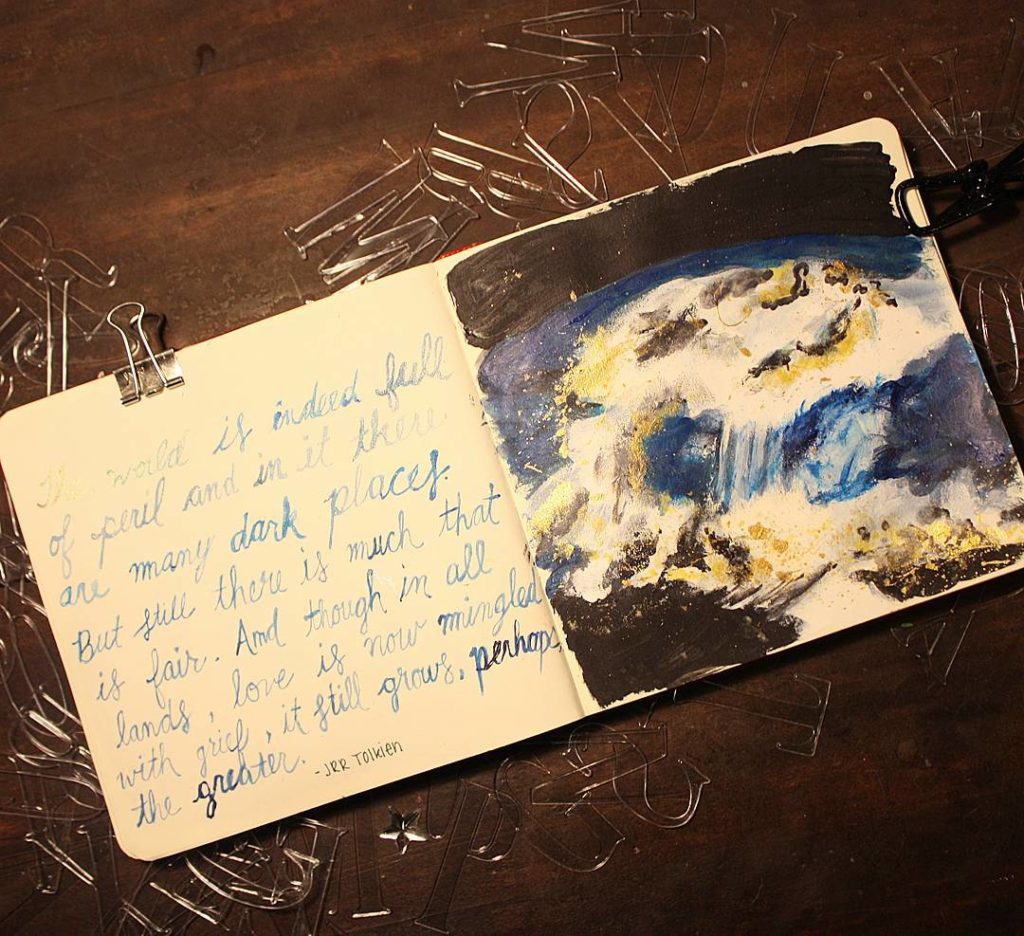 The world is indeed full
of peril and in it there
are many dark places.
But still there is much that
is fair. And though in all
lands, love is now mingled
with grief, it still grows, perhaps,
the greater.
-JRR Tolkien